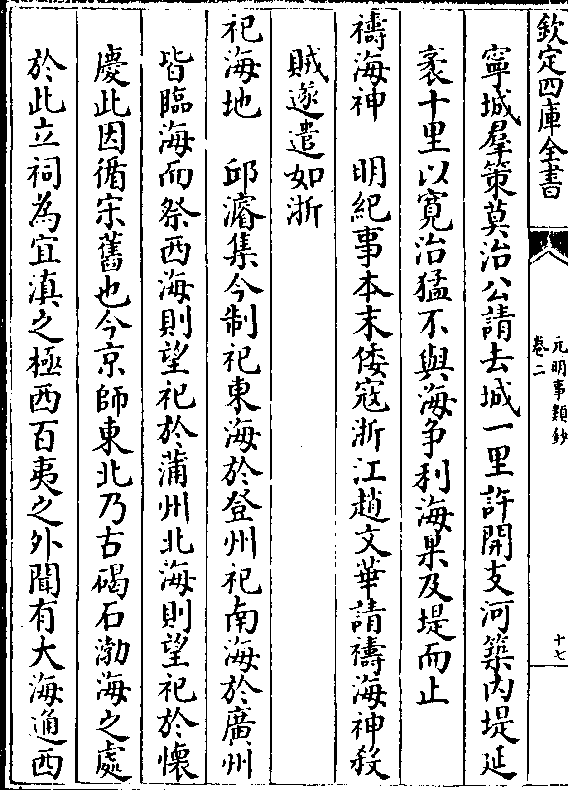 欽定四庫全書
元明事類鈔
卷二
十七
寧城羣策莫治公請去城一里許開支河築内堤延
袤十里以寛治猛不與海争利海果及堤而止
禱海神　明紀事本末倭寇浙江趙文華請禱海神殺
賊遂遣如浙
祀海地　邱濬集今制祀東海於登州祀南海於廣州
皆臨海而祭西海則望祀於蒲州北海則望祀於懷
慶此因循宋舊也今京師東北乃古碣石渤海之處
於此立祠為宜滇之極西百夷之外聞有大海通西